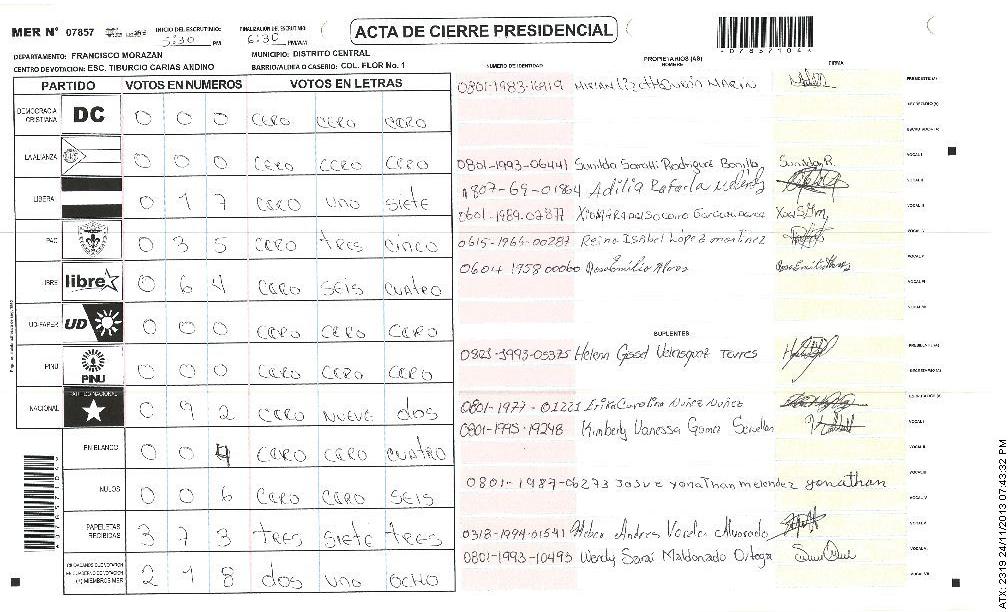 MER Nº 07857 INICIO DEL ESCRUTINIO: 5:30 PM FINALIZACIÓN DEL ESCRUTINIO: 6:30 PM/AM ACTA DE CIERRE PRESIDENCIAL
DEPARTAMENTO: FRANCISCO MORAZAN MUNICIPIO: DISTRITO CENTRAL
CENTRO DE VOTACION: ESC. TIBURCIO CARIAS ANDINO BARRIO/ALDEA O CASERIO: COL. FLOR No. 1
PARTIDO VOTOS EN NUMEROS VOTOS EN LETRAS
DEMOCRACIA CRISTIANA DC 0 0 0 CERO CERO CERO
LA ALIANZA 0 0 0 CERO CERO CERO
LIBERAL 0 1 7 CERO UNO SIETE
PAC 0 3 5 CERO TRES CINCO
LIBRE libre 0 6 4 CERO SEIS CUATRO
UD-FAPER UD 0 0 0 CERO CERO CERO
PINU PINU 0 0 0 CERO CERO CERO
NACIONAL PARTIDO NACIONAL 0 9 2 CERO NUEVE DOS
EN BLANCO 0 0 4 CERO CERO CUATRO
NULOS 0 0 6 CERO CERO SEIS
PAPELETAS RECIBIDAS 3 7 3 TRES SIETE TRES
2 1 8 DOS UNO OCHO
NUMERO DE IDENTIDAD PROPIETARIOS (AS) NOMBRE FIRMA
0801-1983-16919 PRESIDENTE (A)
SECRETARIO (A)
ESCRUTADOR (A)
0801-1993-06441 Sunilda Saratti Rodriguez Bonilla Sunilda R. VOCAL I
Adilia Rafaela VOCAL II
0601-1989-02877 VOCAL III
0615-1965-00287 Reina Isabel López martinez
0601-1958 00060 Jose Emilio Jose Emilio VOCAL V
VOCAL VI
VOCAL VII
SUPLENTES
Helenn Gissel Velasquez Torres PRESIDENTE (A)
SECRETARIO (A)
0801-1977-01221 Erika Carolina Nuñez Nuñez ESCRUTADOR (A)
0801-1995-19248 Kimberly Vanessa Gomez VOCAL I
VOCAL II
0801-1987-06273 JOSUE yonathan melendez yonathan VOCAL III
VOCAL IV
0318-1994-01541 Heber Andres Alvarado VOCAL V
0801-1993-10493 Wendy Sarai Maldonado Ortega VOCAL VI
VOCAL VII
ATX: 2319 24/11/2013 07:43:32 PM